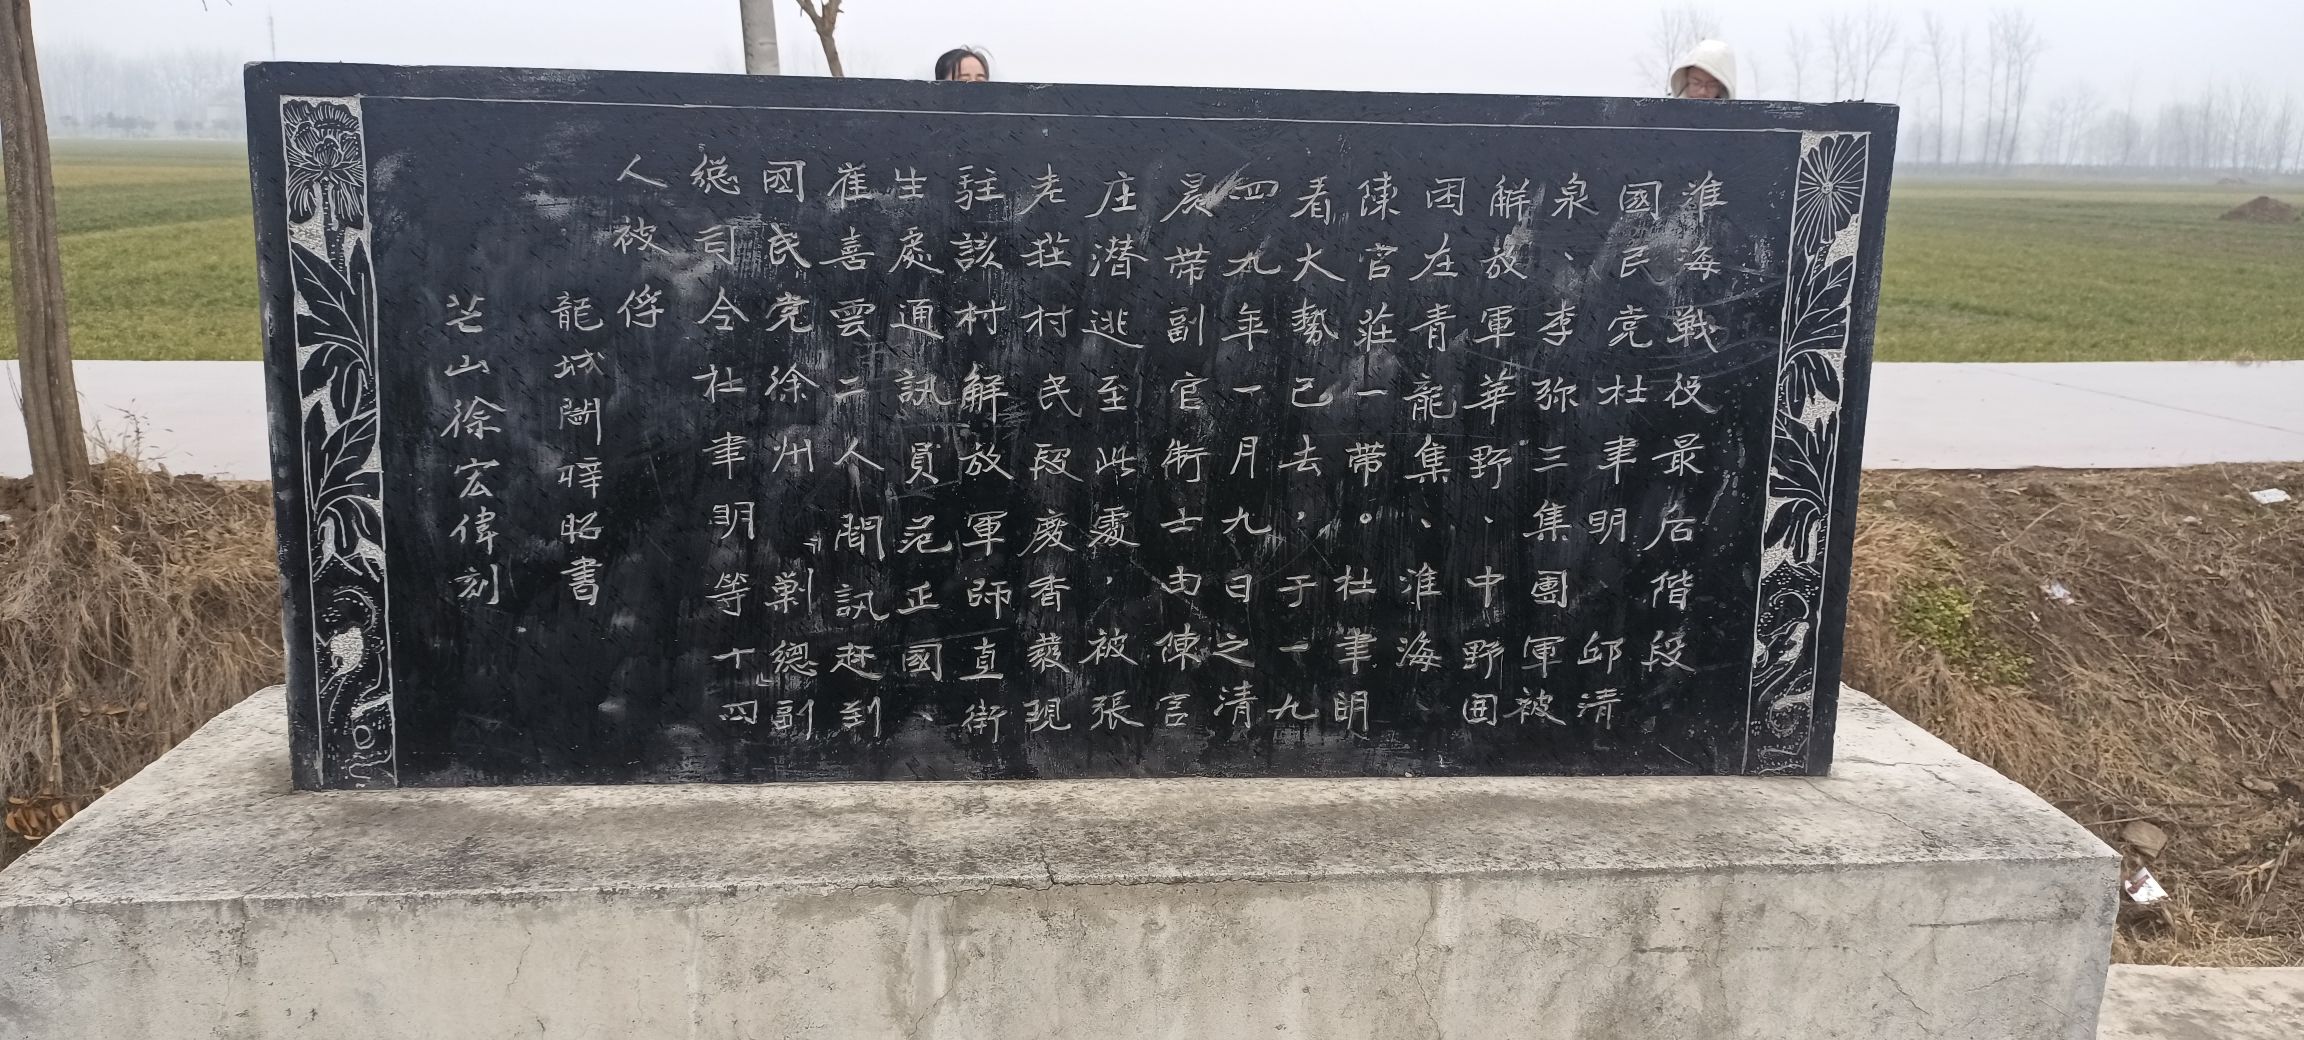 淮海戰役最后階段
國民党杜聿明邱清
泉、李弥三集團軍被
解放軍華野、中野囲
困在青龍集、淮海、
陳官莊一带。杜聿明
看大勢已去，于一九
四九年一月九日之清
晨带副官衛士由陳官
庄潜逃至此處，被張
老莊村民段慶香發現
駐該村解放軍師直衛
生處通訊員范正國、
崔善雲二人聞訊赶到
國民党徐州『剿總』副
總司令杜聿明等十四
人被俘
龍城闞梓昭書
芒山徐宏偉刻